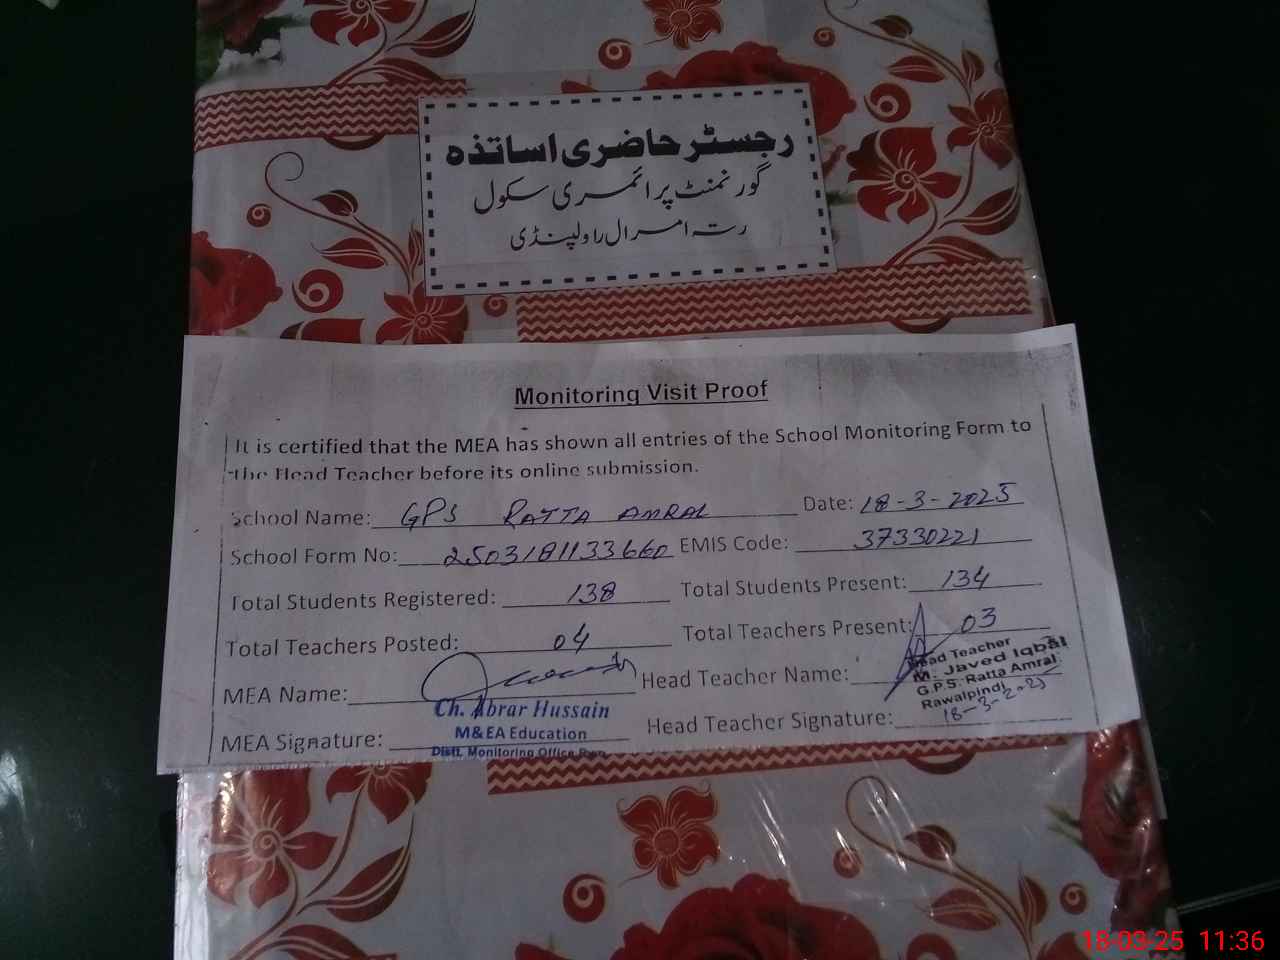 رجسٹر حاضری اساتذہ
گورنمنٹ پرائمری سکول
رتہ امرال راولپنڈی
Monitoring Visit Proof
It is certified that the MEA has shown all entries of the School Monitoring Form to
the Head Teacher before its online submission.
School Name: GPS RATTA AMRAL Date: 18-3-2025
School Form No: 2503181133660 EMIS Code: 37330221
Total Students Registered: 138 Total Students Present: 134
Total Teachers Posted: 04 Total Teachers Present: 03
MEA Name: Head Teacher Name:
Head Teacher
M. Javed Iqbal
G.P.S. Ratta Amral
Rawalpindi
18-3-2025
Ch. Abrar Hussain
M&EA Education
Distt. Monitoring Office Rwp
MEA Signature: Head Teacher Signature:
18-03-25 11:36